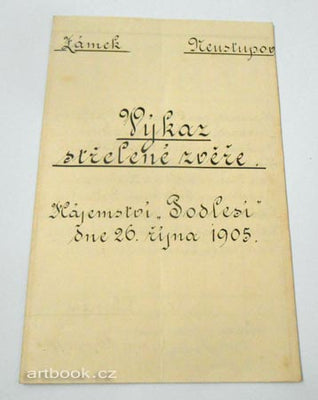 Zámek Neustupov
Výkaz
střelené zvěře.
Nájemství „Podlesí"
dne 26. října 1905.
artbook.cz